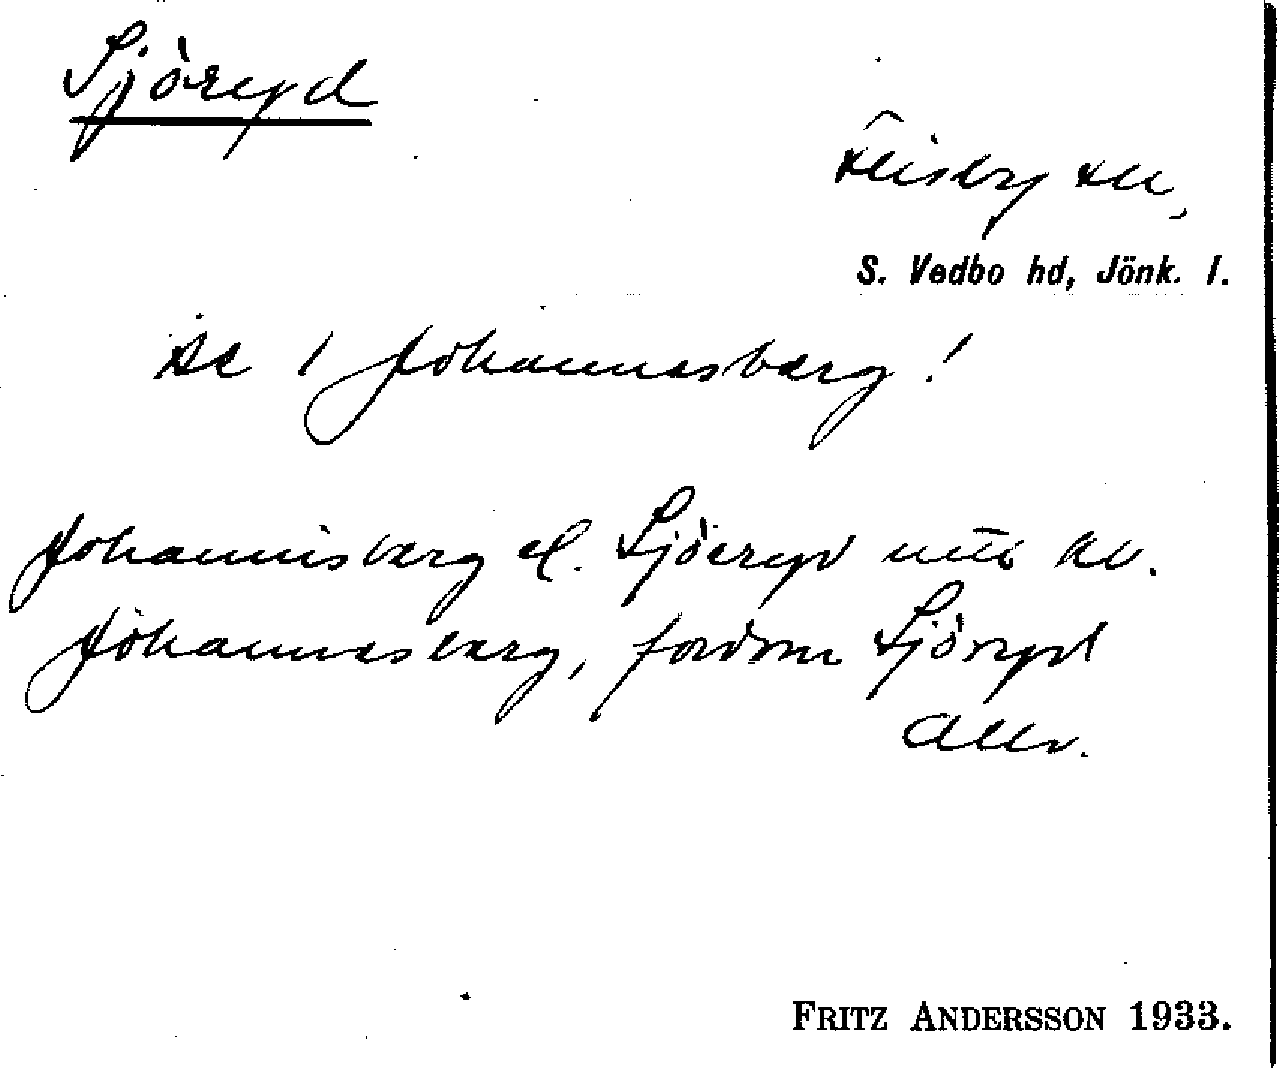 Sjöryd
Flisby sn,
S. Vedbo hd, Jönk. l.
Se 1 Johannesberg!
Johannisberg el. Sjöeryd
Johannesberg, fordom Sjöryd
FRITZ ANDERSSON 1933.